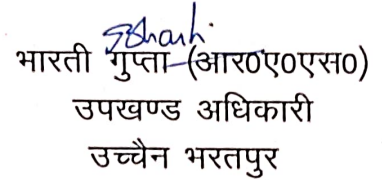 Bharti
भारती गुप्ता (आर०ए०एस०)
उपखण्ड अधिकारी
उच्चैन भरतपुर